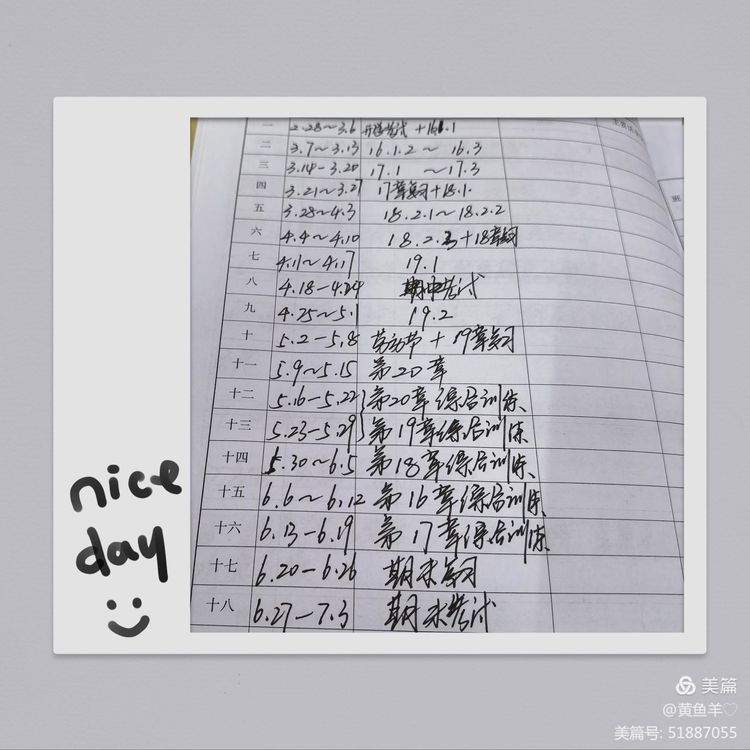 一 2.28～3.6 开学考试 +16.1
二 3.7～3.13 16.1.2～16.3
三 3.14-3.20 17.1 ～17.3
四 3.21～3.27 17章复习+18.1
五 3.28～4.3 18.2.1～18.2.2
六 4.4～4.10 18.2.3+18章复习
七 4.11～4.17 19.1
八 4.18-4.24 期中考试
九 4.25～5.1 19.2
十 5.2-5.8 劳动节+19章复习
十一 5.9～5.15 第20章
十二 5.16-5.22 第20章综合训练
十三 5.23-5.29 第19章综合训练
十四 5.30～6.5 第18章综合训练
十五 6.6～6.12 第16章综合训练
十六 6.13-6.19 第17章综合训练
十七 6.20-6.26 期末复习
十八 6.27-7.3 期末考试
班
nice
day
美篇
@黄鱼羊♡
美篇号: 51887055